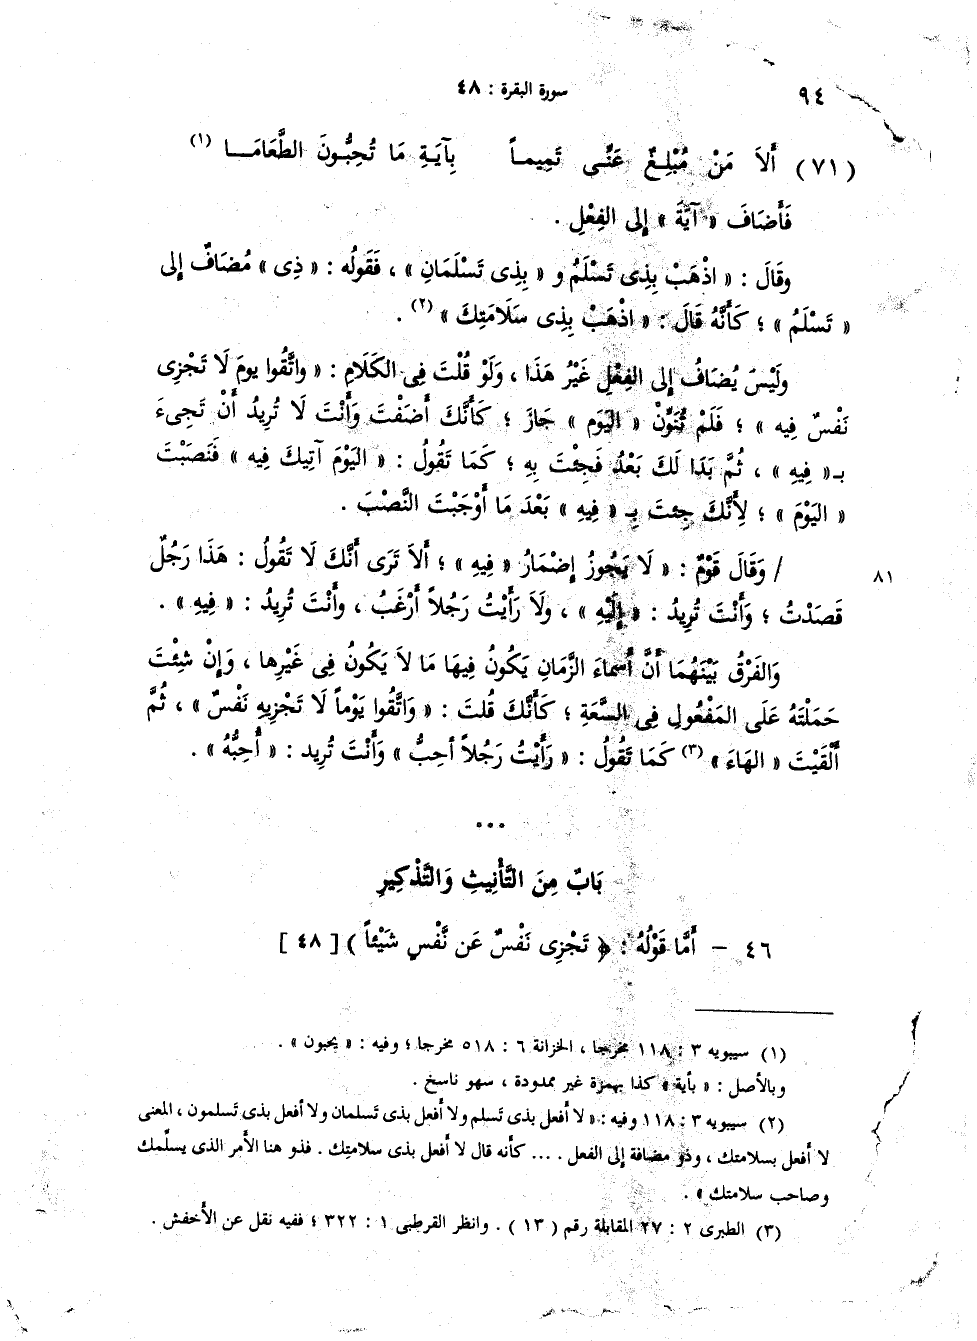 ٩٤ سورة البقرة : ٤٨
(٧١) أَلاَ مَنْ مُبْلِغٌ عَنِّى تَمِيماً بِآيَةِ مَا تُحِبُّونَ الطَّعَامَا (١)
فَأَضَافَ « آيَةَ » إلى الفِعْلِ .
وقَالَ : « اذْهَبْ بِذِى تَسْلَمُ و « بِذِى تَسْلَمَانِ » ، فَقَولُه : « ذِى » مُضَافٌ إلى
« تَسْلَمُ » ؛ كَأَنَّهُ قَالَ : « اذْهَبْ بِذِى سَلَامَتِكَ » (٢) .
ولَيْسَ يُضَافُ إلى الفِعْلِ غَيْرُ هَذَا ، وَلَوْ قُلْتَ فِى الكَلَامِ : « واتَّقُوا يومَ لَا تَجْزِى
نَفْسٌ فِيه » ؛ فَلَمْ تُنَوِّنْ « اليَوم » جَازَ ؛ كَأَنَّكَ أَضَفْتَ وَأَنْتَ لَا تُرِيدُ أَنْ تَجِىءَ
بـ« فِيهِ » ، ثُمَّ بَدَا لَكَ بَعْدُ فَجِئْتَ بِهِ ؛ كَمَا تَقُولُ : « اليَوْمَ آتِيكَ فِيه » فَنَصَبْتَ
« اليَوْمَ » ؛ لِأَنَّكَ جِئتَ بِـ « فِيهِ » بَعْدَ مَا أَوْجَبْتَ النَّصْبَ .
/ وَقَالَ قَوْمٌ : « لَا يَجُوزُ إِضْمَارُ « فِيهِ » ؛ أَلاَ تَرَى أَنَّكَ لَا تَقُولُ : هَذَا رَجُلٌ ٨١
قَصَدْتُ ؛ وَأَنْتَ تُرِيدُ : « إِلَيْهِ » ، ولَا رَأَيْتُ رَجُلاً أَرْغَبُ ، وأَنْتَ تُرِيدُ : « فِيهِ » .
وَالفَرْقُ بَيْنَهُمَا أَنَّ أَسْمَاءَ الزَّمَانِ يَكُونُ فِيهَا مَا لاَ يَكُونُ فِى غَيْرِها ، وَإِنْ شِئْتَ
حَمَلْتَهُ عَلَى المَفْعُولِ فِى السَّعَةِ ؛ كَأَنَّكَ قُلتَ : « وَاتَّقُوا يَوْماً لَا تَجْزِيهِ نَفْسٌ » ، ثُمَّ
أَلْقَيْتَ « الهَاءَ » (٣) كَمَا تَقُولُ : « رَأَيْتُ رَجُلاً أحِبُّ » وَأَنْتَ تُرِيد : « أُحِبُّهُ » .
• • •
بَابٌ مِنَ التَّأْنِيثِ وَالتَّذْكِيرِ
٤٦ – أَمَّا قَوْلُهُ : ﴿ تَجْزِى نَفْسٌ عَن نَّفْسٍ شَيْئاً ﴾ [ ٤٨ ]
(١) سيبويه ٣ : ١١٨ مخرجا ، الخزانة ٦ : ٥١٨ مخرجا ؛ وفيه : « يحبون » .
وبالأصل : « بأية » كذا بهمزة غير ممدودة ، سهو ناسخ .
(٢) سيبويه ٣ : ١١٨ وفيه : « لا أفعل بذى تَسلم ولا أفعل بذى تَسلمان ولا أفعل بذى تَسلمون ، المعنى
لا أفعل بسلامتك ، وذو مضافة إلى الفعل . ... كأنه قال لا أفعل بذى سلامتِك . فذو هنا الأمر الذى يسلّمك
وصاحب سلامتك » .
(٣) الطبرى ٢ : ٢٧ المقابلة رقم ( ١٣ ) . وانظر القرطبى ١ : ٣٢٢ ؛ ففيه نقل عن الأخفش .